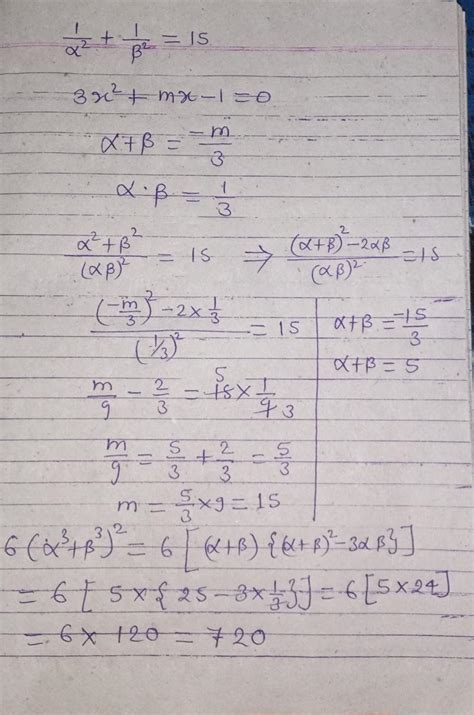 1/α² + 1/β² = 15
3x² + mx - 1 = 0
α+β = -m/3
α·β = 1/3
(α²+β²)/(αβ)² = 15 ⇒ ((α+β)² - 2αβ)/(αβ)² = 15
((-m/3)² - 2×1/3)/(1/3)² = 15
α+β = -15/3
α+β = 5
m/9 - 2/3 = 15 5 × 1/9 3
m/9 = 5/3 + 2/3 = 5/3
m = 5/3 × 9 = 15
6(α³+β³)² = 6[(α+β){(α+β)² - 3αβ}]
= 6[5×{25 - 3×1/3}] = 6[5×24]
= 6 × 120 = 720